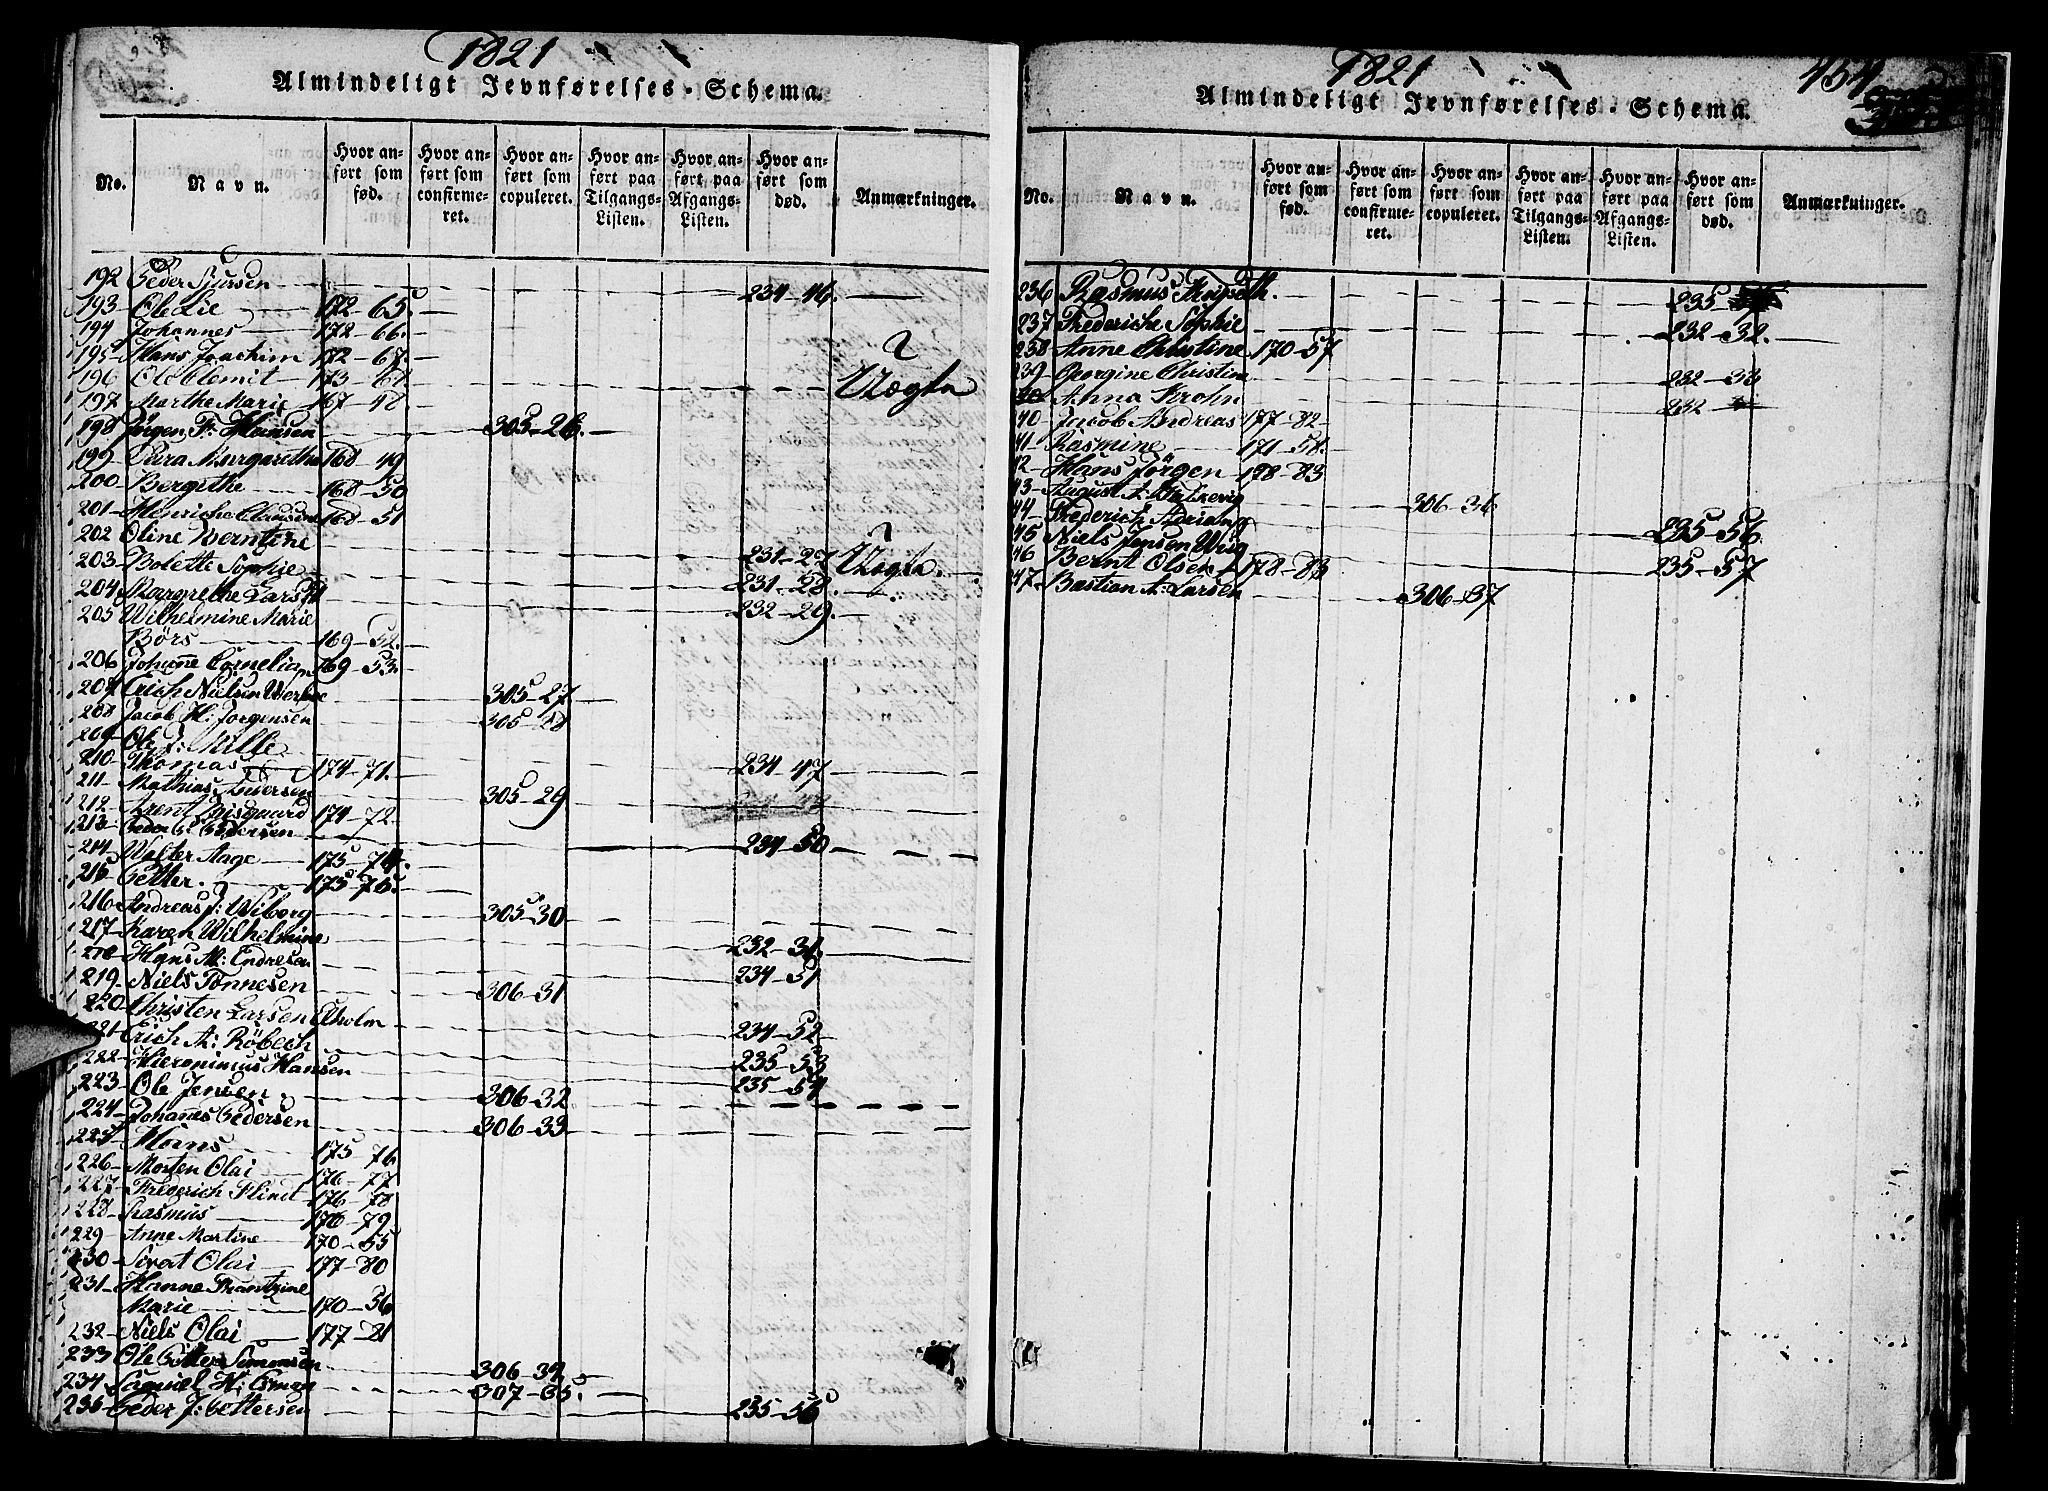 1821
Almindeligt Jevnførelses-Schema.
No.
Navn.
Hvor anført som fød.
Hvor anført som confirmeret.
Hvor anført som copuleret.
Hvor anført paa Tilgangs-Listen.
Hvor anført paa Afgangs-Listen.
Hvor anført som død.
Anmærkninger.
192 Peder Sjursen 234-46.
193 Ole Lie 172-65.
194 Johannes 172-66.
195 Hans Joachim 172-67.
196 Ole Clemit 173-
197 Marthe Marie 167-48.
198 Jörgen F: Hansen 305-26.
199 Petra Margarethe 168-49
200 Bergithe 168-50
201 Hinriche 168-51
202 Oline Berntine 231-27
203 Bolette Sophie 231-28.
204 Margrethe Lars D 232-29.
205 Wilhelmine Marie
Börs 169-52.
206 Johanne Cornelia 169-53.
207 Erich Nielsen 305-27
208 Jacob H: Jorgensen 305-28
209 Ole J: Mille 234-47
210 Thomas 174-71.
211 Mathias Andersen 305-29
212 Arent 174-72.
213 Peder Pedersen 234-50
214 Walter Aage 175-74.
215 Petter. 175-75.
216 Andreas J: Wiborg 305-30
217 Karen Wilhelmine 232-31.
218 Hans M: Endresen 234-51
219 Niels Tönnesen 306-31
220 Christen Larsen Elholm 234-52
221 Erich A: Röbech 235-53
222 Hieronimus Hansen 235-54
223 Ole Jensen 306-32
224 Johannes Pedersen 306-33
225 Hans 175-76
226 Morten Olai 176-77
227 Frederich Flindt 176-78
228 Rasmus 176-79
229 Anne Martine 170-55
230 Sivat Olai 177-80
231 Hanne Frantzine
Marie 170-56
232 Niels Olai 177-81
233 Ole Petter Simonsen 306-34
234 Samuel H: 307-35.
235 Peder J: Pettersen 235-55
1821
454
Almindeligt Jevnførelses-Schema.
No.
Navn.
Hvor anført som fød.
Hvor anført som confirmeret.
Hvor anført som copuleret.
Hvor anført paa Tilgangs-Listen.
Hvor anført paa Afgangs-Listen.
Hvor anført som død.
Anmærkninger.
236 Rasmus 235-
237 Frederiche Sophie 232-32.
238 Anne Christine 170-57
239 Georgine Christine 232-33
Anna Krohn 232
40 Jacob Andreas 177-82
41 Rasmine 171-58.
42 Hans Jörgen 178-83
43 August A: 306-36
44 Frederich Adrian 235-56
45 Niels Jensen 235-57
46 Bernt Olsen 178-83
47 Bastian A: Larsen 306-37